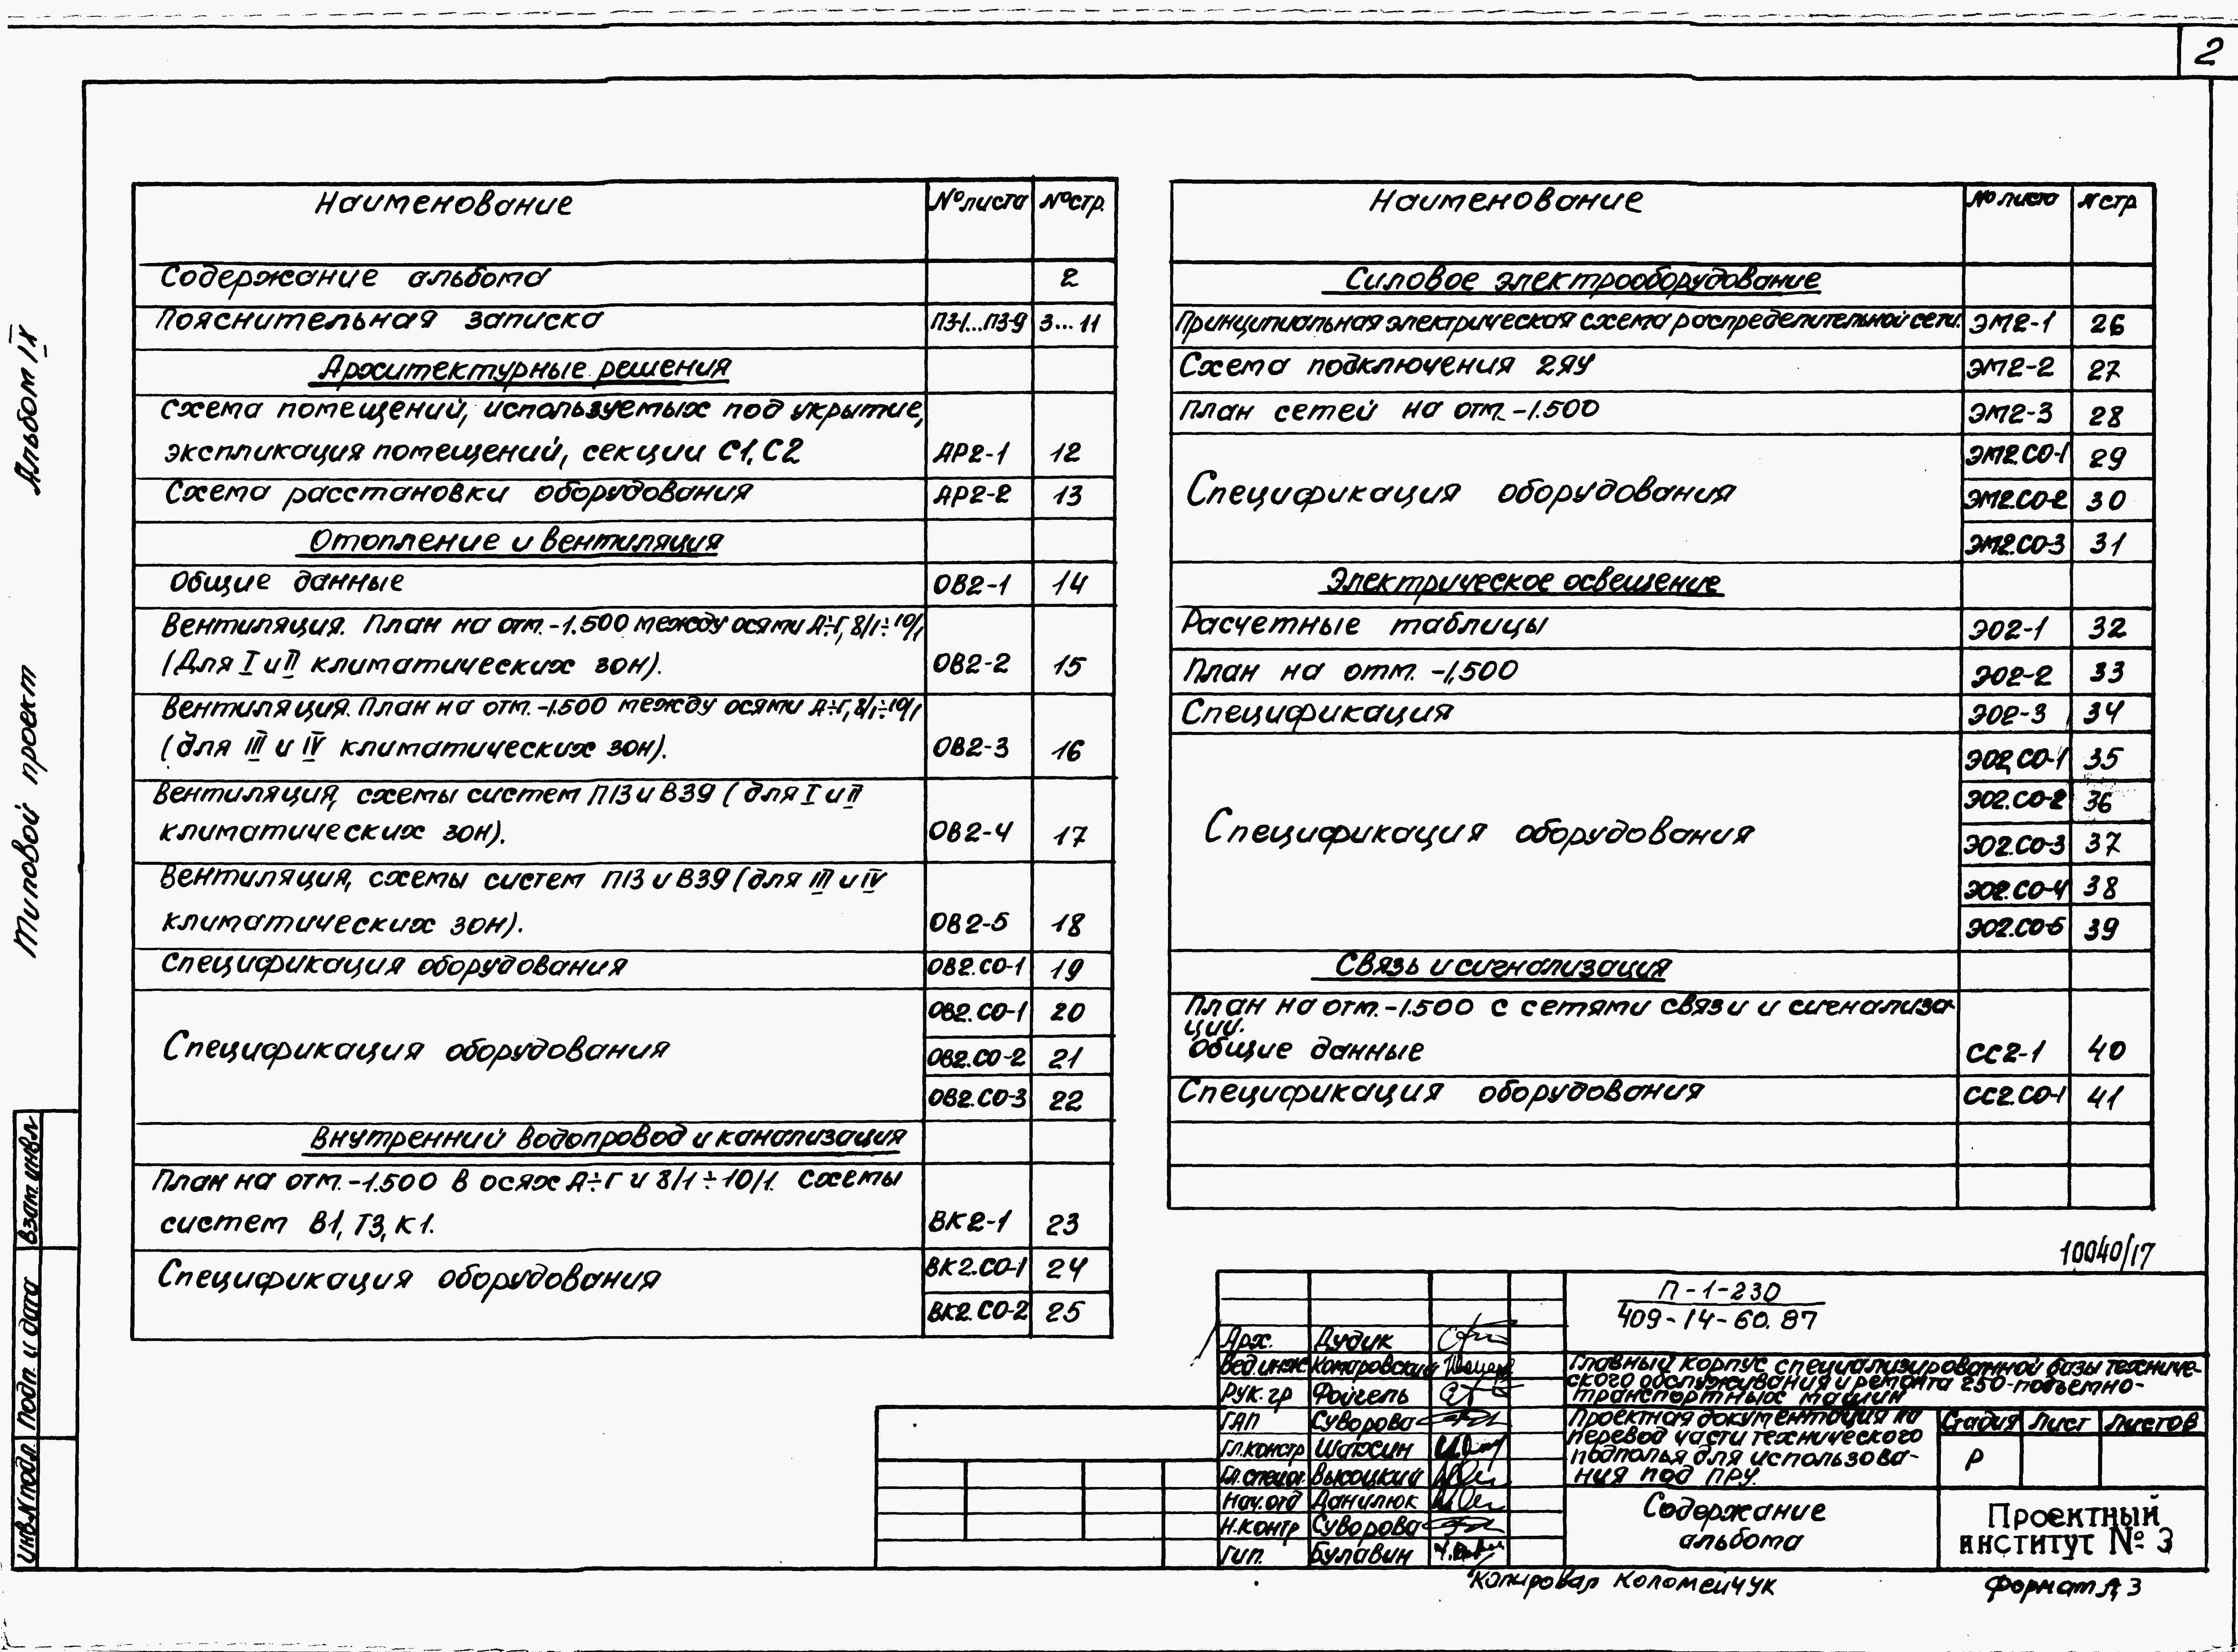 2
Альбом IX
Типовой проект
Взам инв.№
Подп. и дата
Инв.N подл.
Наименование №листа №стр.
Содержание альбома 2
Пояснительная записка ПЗ-1...ПЗ-9 3...11
Архитектурные решения
Схема помещений, используемых под укрытие,
экспликация помещений, секции С1, С2 АР2-1 12
Схема расстановки оборудования АР2-2 13
Отопление и вентиляция
Общие данные ОВ2-1 14
Вентиляция. План на отм.-1.500 между осями А÷Г, 8/1÷10/1
(Для I и II климатических зон). ОВ2-2 15
Вентиляция. План на отм.-1.500 между осями А÷Г, 8/1÷10/1
(для III и IV климатических зон). ОВ2-3 16
Вентиляция, схемы систем П13 и В39 (для I и II
климатических зон). ОВ2-4 17
Вентиляция, схемы систем П13 и В39 (для III и IV
климатических зон). ОВ2-5 18
Спецификация оборудования ОВ2.СО-1 19
Спецификация оборудования ОВ2.СО-1 20
ОВ2.СО-2 21
ОВ2.СО-3 22
Внутренний водопровод и канализация
План на отм.-1.500 в осях А÷Г и 8/1÷10/1. Схемы
систем В1, Т3, К1. ВК2-1 23
Спецификация оборудования ВК2.СО-1 24
ВК2.СО-2 25
Наименование №листа N стр
Силовое электрооборудование
Принципиальная электрическая схема распределительной сети. ЭМ2-1 26
Схема подключения 2ЯУ ЭМ2-2 27
План сетей на отм.-1.500 ЭМ2-3 28
Спецификация оборудования ЭМ2.СО-1 29
ЭМ2.СО-2 30
ЭМ2.СО-3 31
Электрическое освещение
Расчетные таблицы ЭО2-1 32
План на отм. -1,500 ЭО2-2 33
Спецификация ЭО2-3 34
Спецификация оборудования ЭО2.СО-1 35
ЭО2.СО-2 36
ЭО2.СО-3 37
ЭО2.СО-4 38
ЭО2.СО-5 39
Связь и сигнализация
План на отм.-1.500 с сетями связи и сигнализа-
ции.
Общие данные СС2-1 40
Спецификация оборудования СС2.СО-1 41
10040/17
П-1-230
409-14-60.87
Арх. Дудик
Вед.инж Комаровский
Рук.гр Фойгель
ГАП Суворова
Гл.констр Шаххин
Гл.специ. Высоцкий
Нач.отд Данилюк
Н.контр Суворова
Гип. Булавин
Главный корпус специализированной базы техниче-
ского обслуживания и ремонта 250-подъемно-
транспортных машин
Проектная документация на
перевод части технического
подполья для использова-
ния под ПРУ.
Стадия Лист Листов
Р
Содержание
альбома
Проектный
институт № 3
Копировал Коломейчук
Формат А3